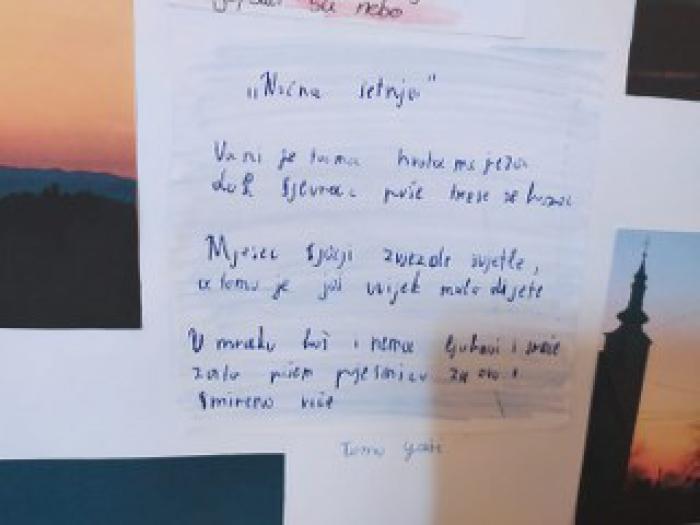 su nebo
„Noćna šetnja"
Vani je tama hvata me jeza
dok sjeverac puše trese se
Mjesec sjaji zvijezde svjetle,
a tamo je još uvijek malo dijete
U mraku baš i nema ljubavi i sreće
zato pišem pjesmicu za ove